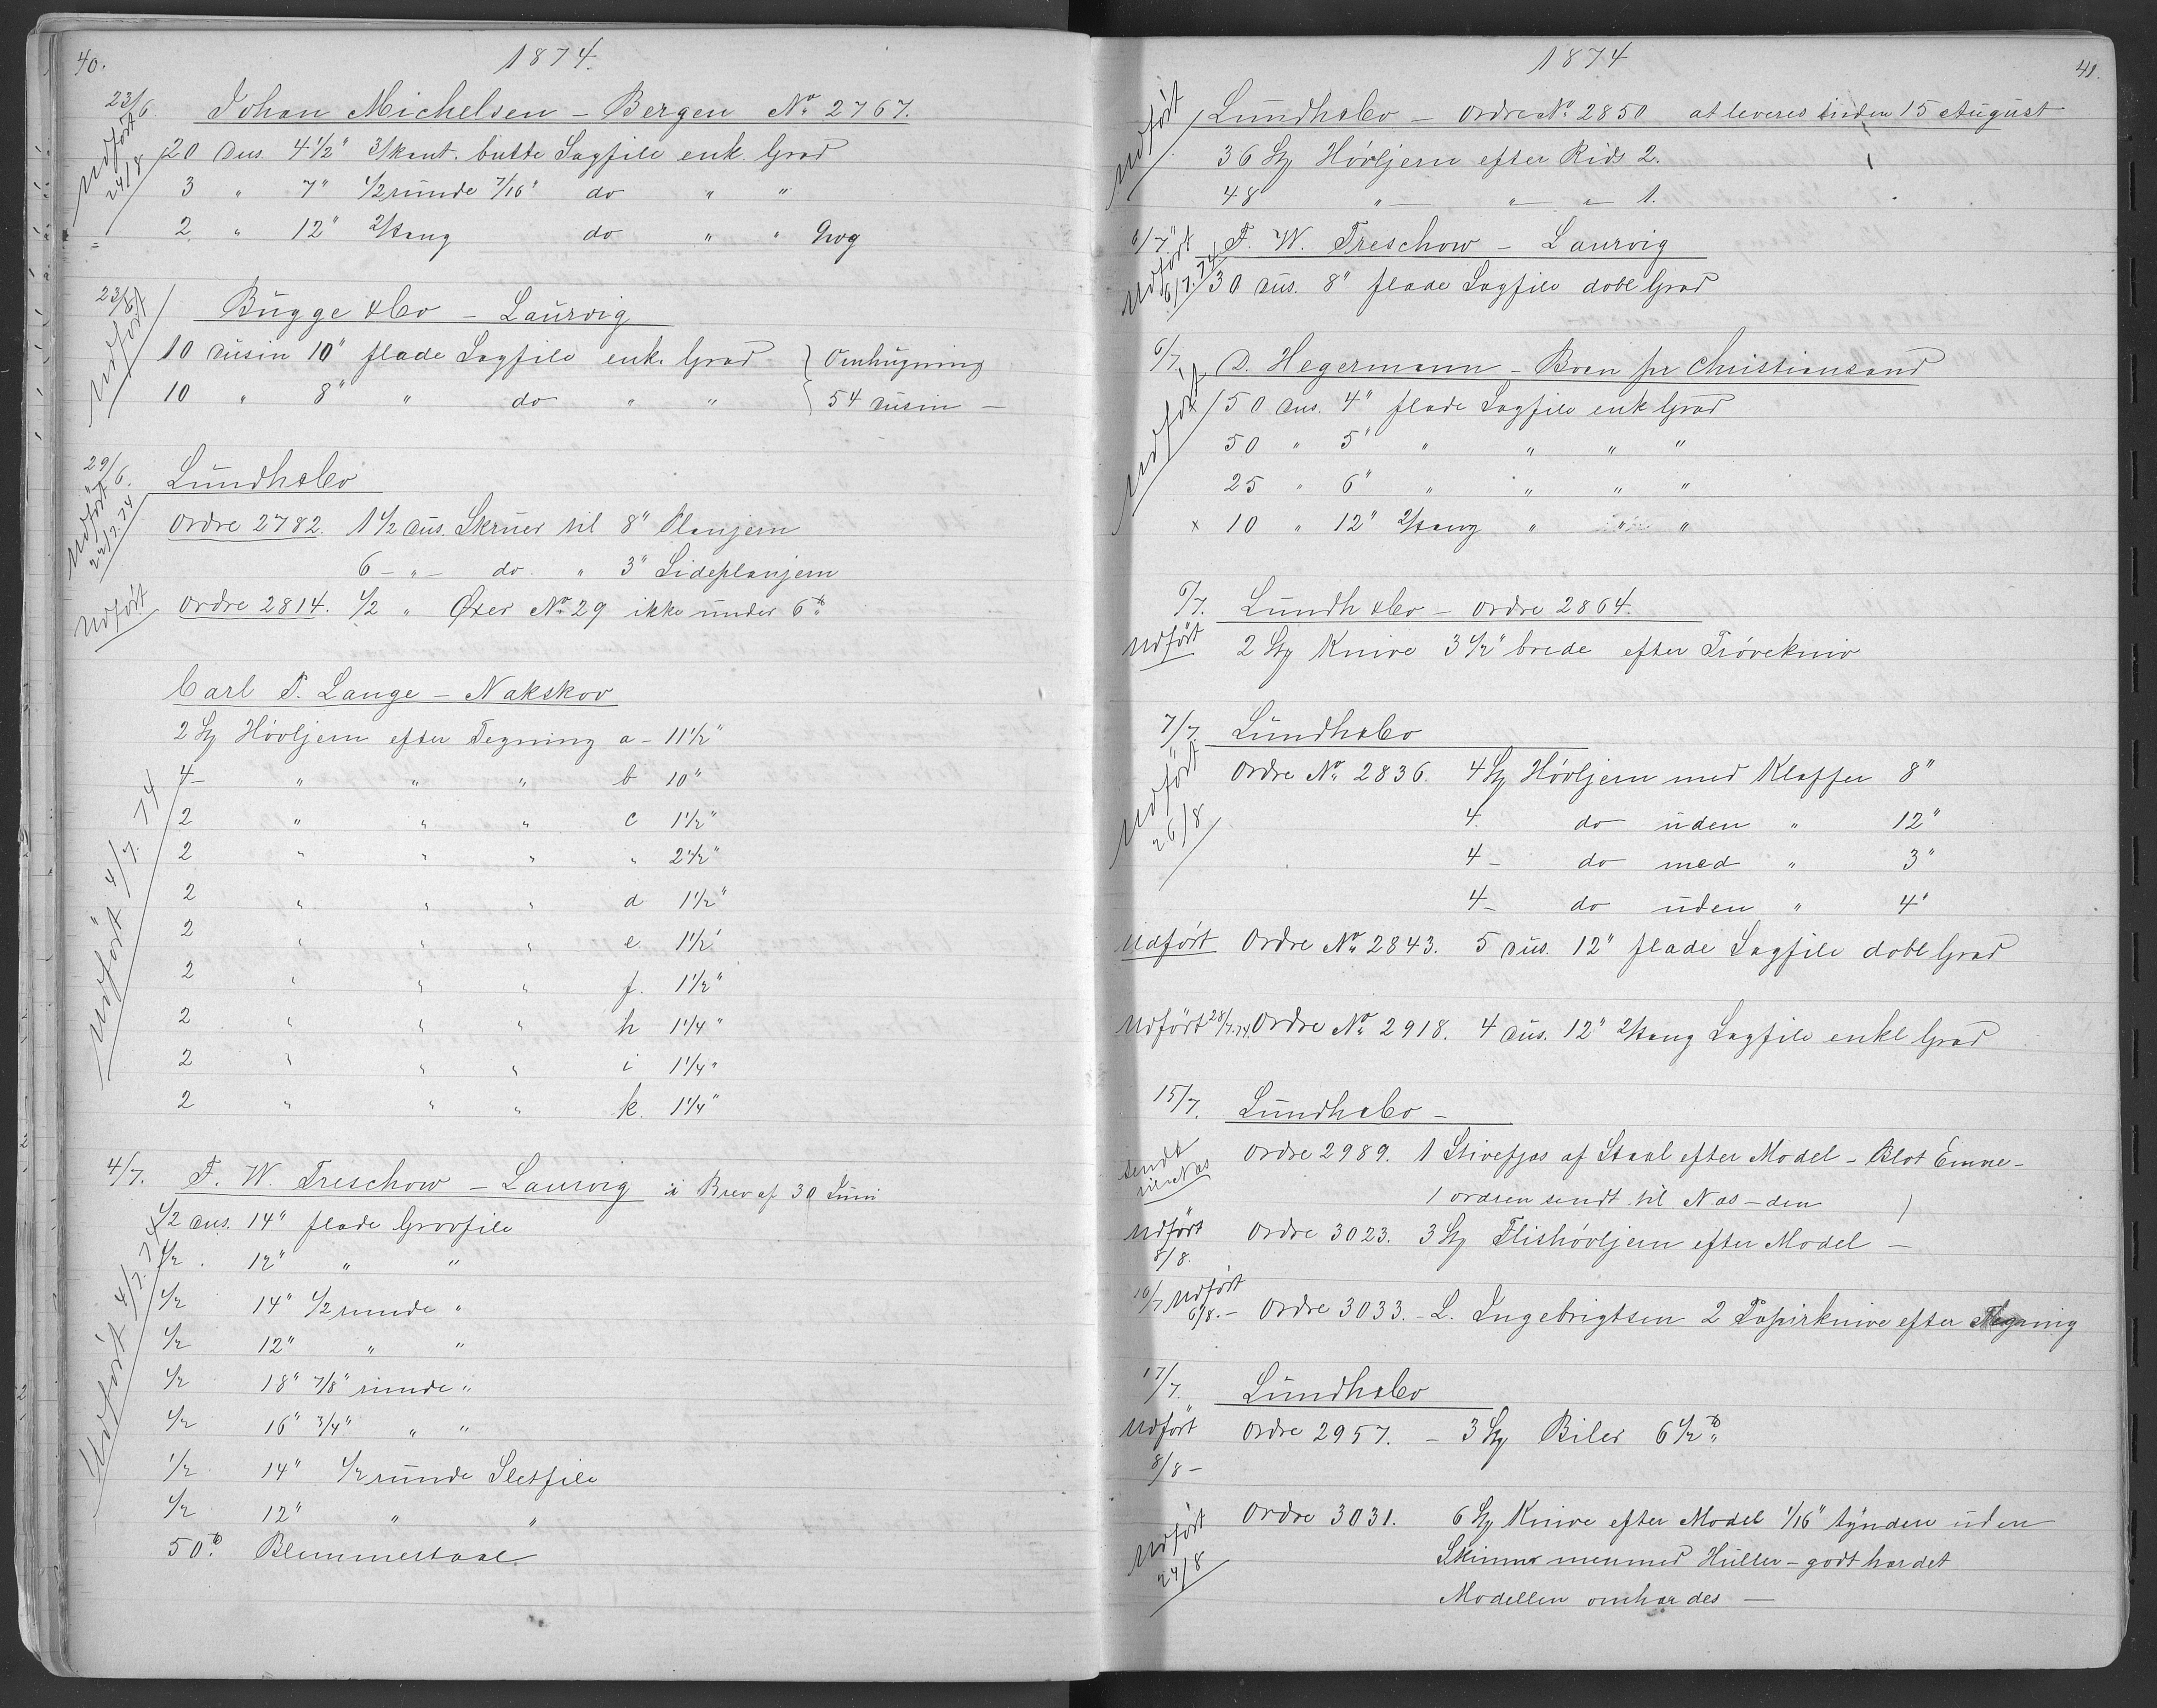 40.
1874.
23/6 Johan Michelsen – Bergen No 2767.
Udført 24/8
20 Dus. 4 1/2" 3/kant. butte Sagfile enk. Grad
3 " 7" 1/2 runde 7/16" do " "
2 " 12" 2/tang do " " Grov
23/6 Bugge & Co – Laurvig
Udført
10 Dusin 10" flade Sagfile enk. Grad } Omhugning
10 " 8" " do " " } 54 Dusin –
29/6. Lundh & Co
Udført 22/7.74
Ordre 2782. 1 1/2 Dus. Skruer til 8" Planjern
6 – " – do. " 3" Sideplanjern
Udført Ordre 2814. 1/2 " Øxer No 29 ikke under 6 ℔
Carl P. Lange – Nakskov
Udført 4/7. 74
2 Stk Høvljern efter Tegning a – 11 1/2"
4 – " " " b 10"
2 " " " c 1 1/2"
2 " " " " 2 1/2"
2 " " " d 1 1/2"
2 " " " e 1 1/2"
2 " " " f. 1 1/2"
2 " " " h 1 1/4"
2 " " " i 1 1/4"
2 " " " k. 1 1/4"
4/7. F. W. Treschow – Laurvig i Brev af 30 Juni
Udført 4/7. 74
1/2 Dus. 14" flade Grovfile
1/2 . 12" " "
1/2 14" 1/2 runde "
1/2 12" " "
1/2 18" 7/8" runde "
1/2 16" 3/4" " "
1/2 14" 1/2 runde Sletfile
1/2 12" " "
50 ℔ Blemmestaal
1874
41.
Udført
Lundh & Co – Ordre No 2850 at leveres inden 15 August
36 Stk Høvljern efter Rids 2.
48 " – " – " – 1.
6/7. F. W. Treschow – Laurvig
Udført 6/7. 74
30 Dus. 8" flade Sagfile dobl Grad
6/7. D. Hegermann – Boen pr Christiansand
Udført
x 50 Dus. 4" flade Sagfile enk Grad
50 " 5" " " " "
25 " 6" " " " "
x 10 " 12" 2/tang " " "
6/7. Lundh & Co – Ordre 2864.
Udført 2 Stk Knive 3 1/2" brede efter Prøvekniv
7/7. Lundh & Co
Udført 26/8
Ordre No 2836. 4 Stk Høvljern med Klaffer 8"
4. do uden " 12"
4 – do med " 3"
4 – do uden " 4"
Udført Ordre No 2843. 5 Dus. 12" flade Sagfile dobl Grad
Udført 28/7.74. Ordre No 2918. 4 Dus. 12" 2/tang Sagfile enkl Grad
15/7. Lundh & Co –
Sendt til Næs
Ordre 2989. 1 af Staal efter Model – Blot Emne –
1 ordren sendt til Næs – den )
Udført 8/8. Ordre 3023. 3 Stk Flishøvljern efter Model –
16/7 Udført 6/8. – Ordre 3033. – L. Ingebrigtsen 2 Papirknive efter Tegning
17/7. Lundh & Co
Udført 8/8 – Ordre 2957. – 3 Stk Biler 6 1/2 ℔
Udført 24/8
Ordre 3031. 6 Stk Knive efter Model 1/16" tyndere uden
Skinner men med Huller – godt hærdet
Modellen omhærdes –